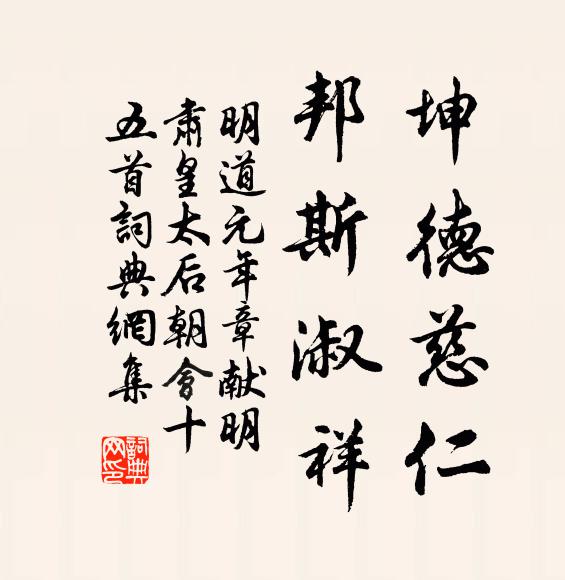 坤德慈仁
邦斯淑祥
明道元年章献明
肅皇太后朝會十
五首詞典網集
詞典网印